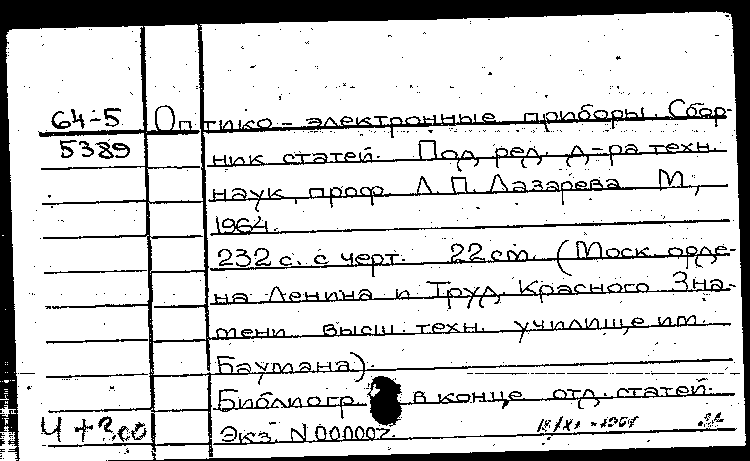 64-5 Оптико-электронные приборы. Сбор-
5389 ник статей. Под ред. д-ра техн.
наук, проф. Л.П. Лазарева М.,
1964.
232 с. с черт. 22 см. (Моск. орде-
на Ленина и Труд. Красного Зна-
мени высш. техн. училище им.
Баумана).
Библиогр. в конце отд. статей.
Экз. N 000002.